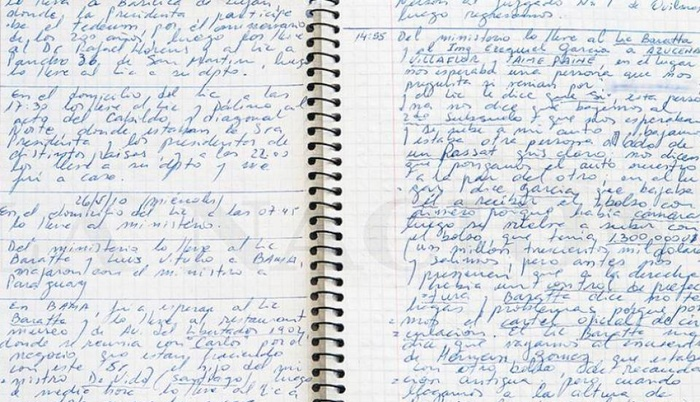 lo llevo a Basilica de Lujan
donde la Presidenta participo
de el tedeum por el aniversario
de los 200 años, y luego por
al Dr. Rafael y al Lic a
36, de San Martin, luego
lo lleve al Lic a su dpto.
En el domicilio del Lic a las
17:30 los lleve al Lic y Palmiro al
acto del Cabildo y diagonal
Norte donde estaban la Sra
Presidenta y los presidentes de
distintos paises y a las 22:00
los lleve a su dpto y me
fui a casa.
26/5/10 (miercoles)
En el domicilio del Lic a las 07:45
lo lleve al ministerio.
Del ministerio lo lleve al Lic
Baratta y Luis Vitulo a BAMA,
viajaron con el ministro a
Paraguay
En BAMA fui a esperar al Lic
Baratta, lo lleve restaurant
de Av. del Libertador 1902
donde se reunia con "Carlos" por el
negocio que estan haciendo
con este Sr. el hijo del mi
nistro De Vido (Santiago), luego
de media hora lo lleve al Lic a
al Juzgado No 1 de
luego regresamos.
14:55 Del ministerio lo lleve al Lic Baratta
y al Ing Ezequiel Garcia a AZUCENA
VILLAFLOR y AIME PAINE, en el lugar
nos esperaba una persona que nos
pregunta si venian por
el Lic dice que Si, esta perso
na nos dice que bajemos al
2do Subsuelo y que nos esperaban
y se sube a mi auto y bajamos
estaba otra persona al lado de
un passat gris claro, nos dicen
que pongamos el auto nuestro
a la par del otro, en el lu
gar dice Garcia que bajaba
el a recibir el bolso con
dinero porque habia camaras
luego se vuelve a subir con
el bolso que tenia 1.300.000 U
(un millon trescientos mil dolares)
y salimos, pero antes nos
que a la derecha
habia un control de prefec
tura, Baratta dice no te
hagas problemas porque por
mos el cartel oficial de cir
culacion. Lic Baratta me
dice que vayamos al encuentro
de Hernan Gomez, que estaba
con otro bolso de recauda
cion antigua, pero cuando
llegamos a la altura de